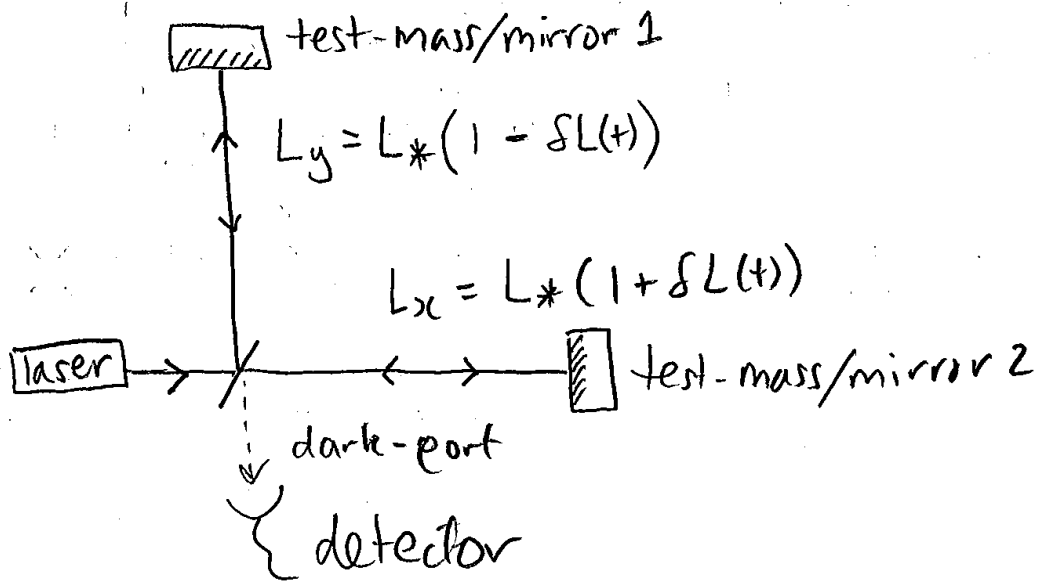 test-mass/mirror 1
Ly = L*(1 - δL(t))
Lx = L*(1 + δL(t))
laser
test-mass/mirror 2
dark-port
detector